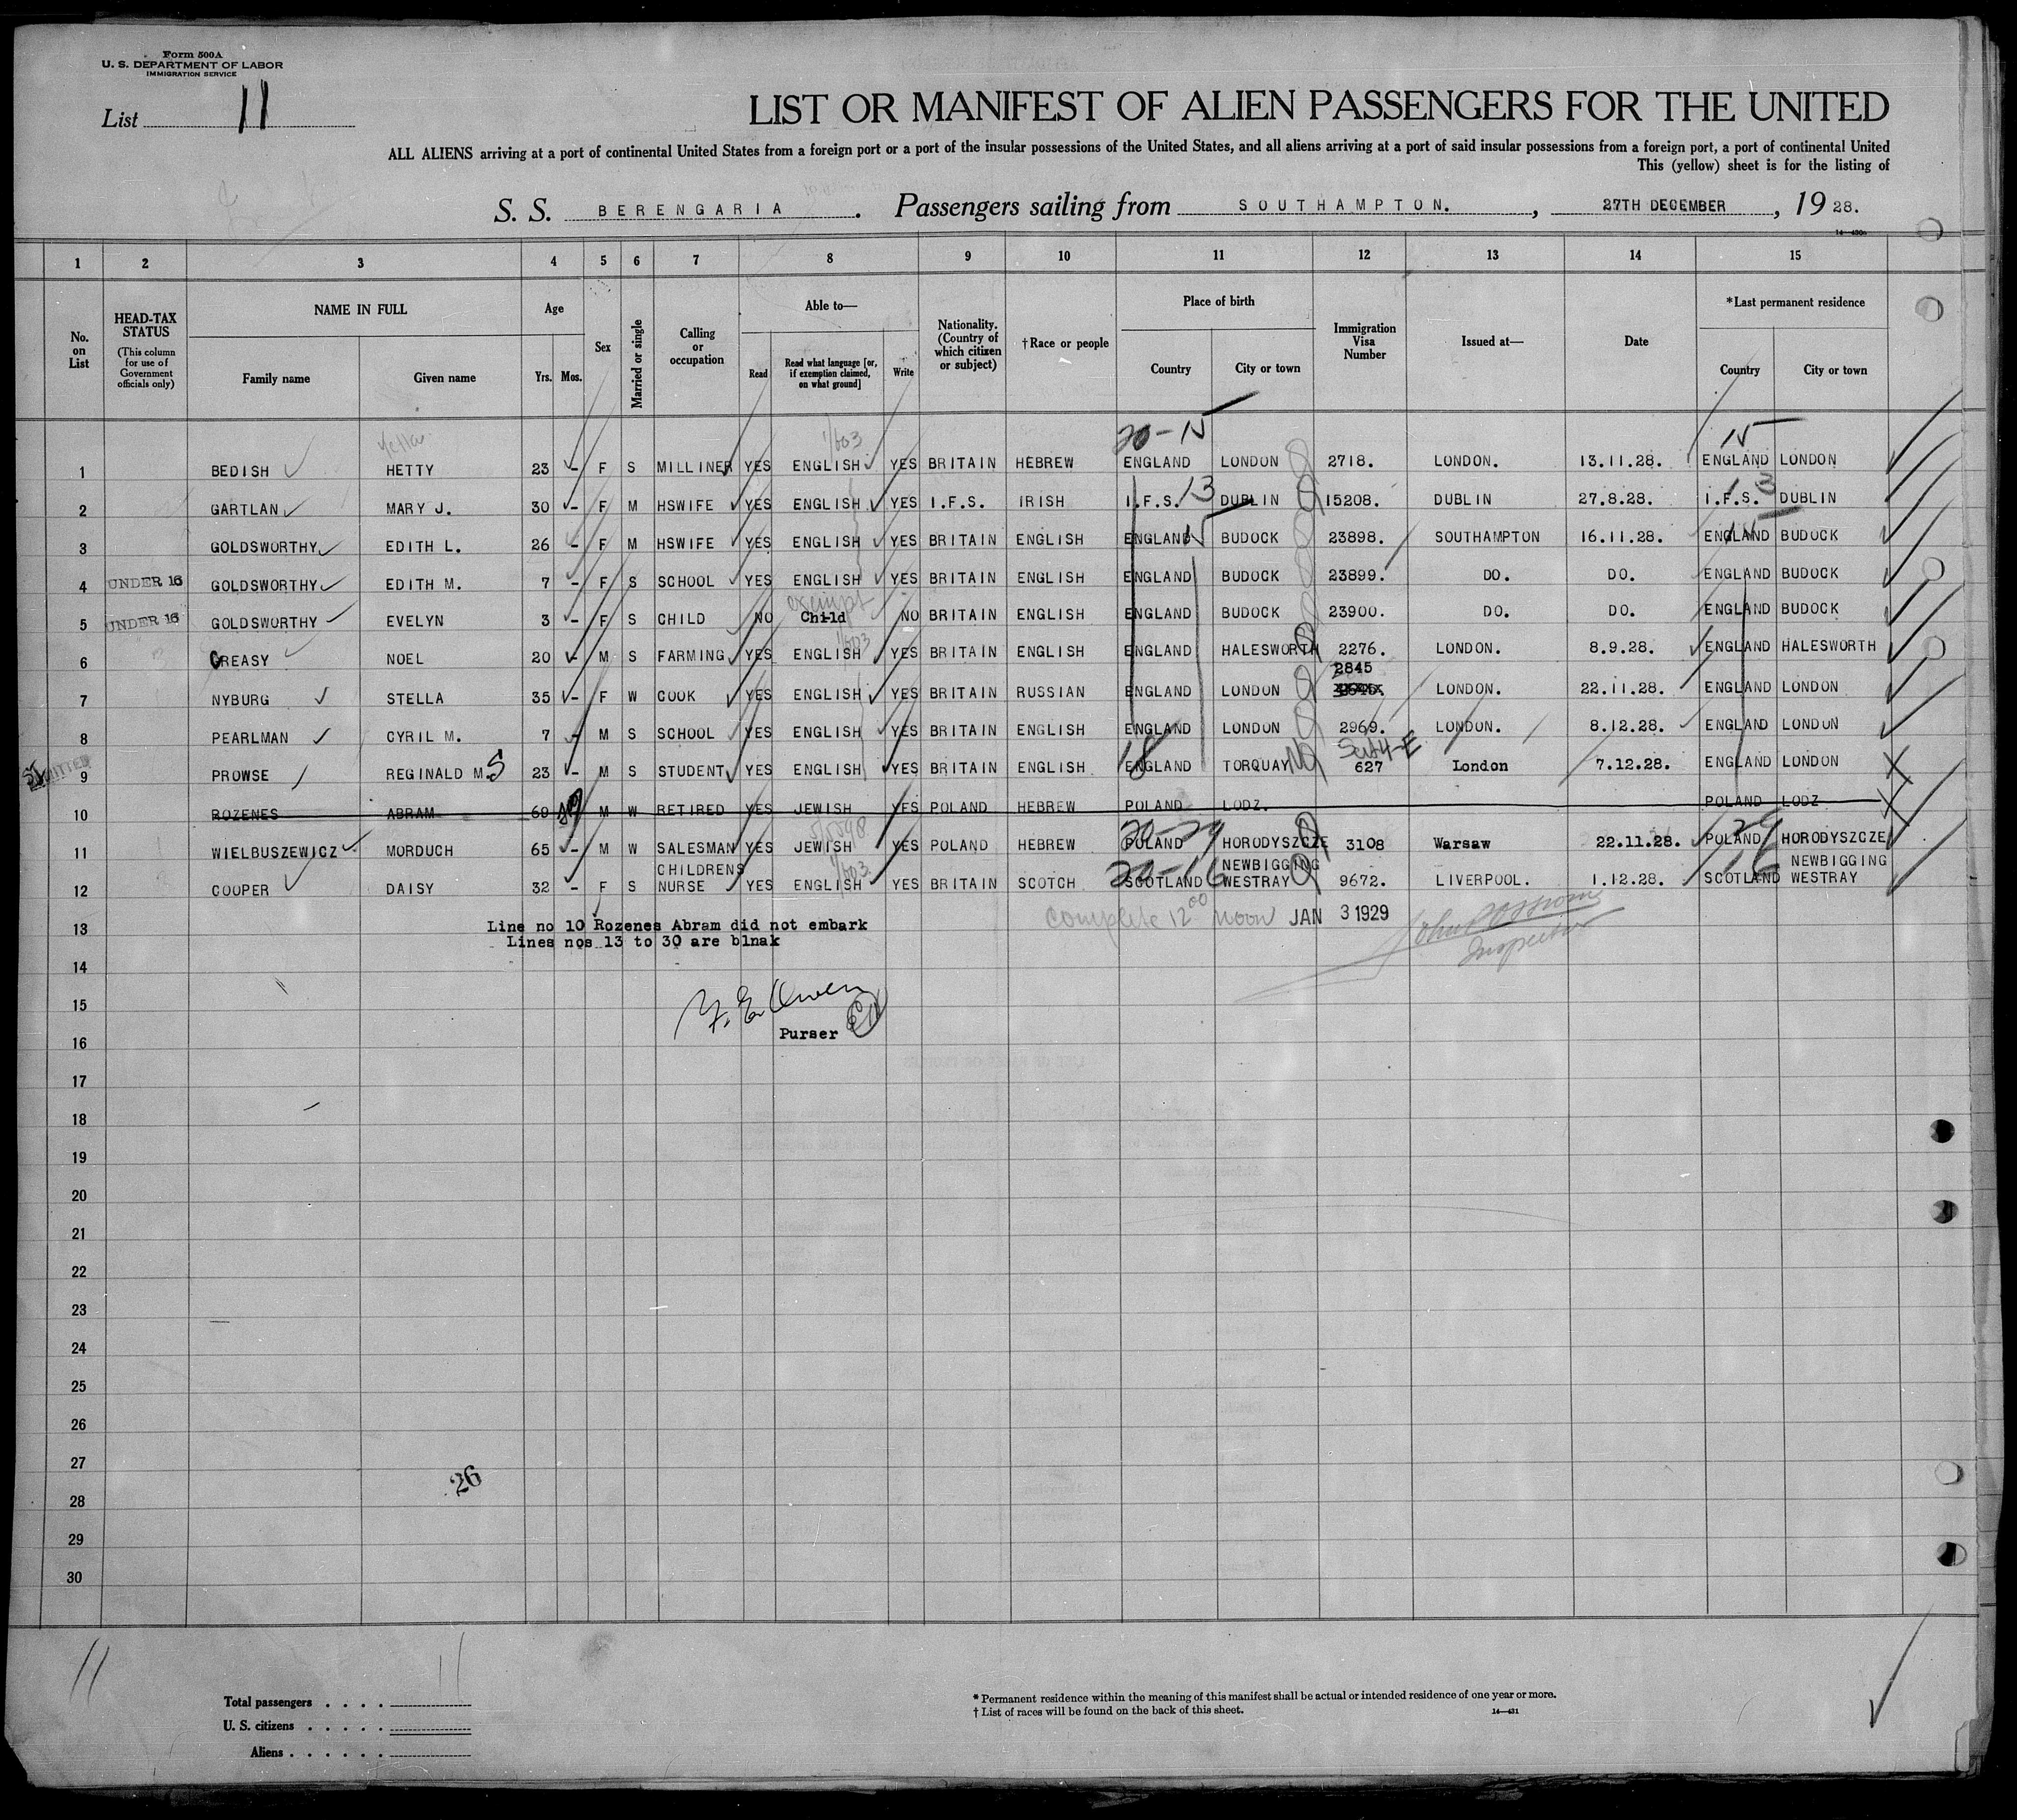 Form 500A
U. S. DEPARTMENT OF LABOR
IMMIGRATION SERVICE
List 11
LIST OR MANIFEST OF ALIEN PASSENGERS FOR THE UNITED
ALL ALIENS arriving at a port of continental United States from a foreign port or a port of the insular possessions of the United States, and all aliens arriving at a port of said insular possessions from a foreign port, a port of continental United
This (yellow) sheet is for the listing of
S. S. BERENGARIA. Passengers sailing from SOUTHAMPTON., 27TH DECEMBER, 1928.
14—430a
1 2 3 4 5 6 7 8 9 10 11 12 13 14 15
No. on List
HEAD-TAX STATUS
(This column for use of Government officials only)
NAME IN FULL
Family name Given name
Age
Yrs. Mos.
Sex
Married or single
Calling or occupation
Able to—
Read
Read what language [or, if exemption claimed, on what ground]
Write
Nationality. (Country of which citizen or subject)
†Race or people
Place of birth
Country City or town
Immigration Visa Number
Issued at—
Date
*Last permanent residence
Country City or town
20-15 15
1 BEDISH HETTY 23 - F S MILLINER YES ENGLISH YES BRITAIN HEBREW ENGLAND LONDON 2718. LONDON. 13.11.28. ENGLAND LONDON
2 GARTLAN MARY J. 30 - F M HSWIFE YES ENGLISH YES I.F.S. IRISH I.F.S. 13 DUBLIN 15208. DUBLIN 27.8.28. I.F.S. 13 DUBLIN
3 GOLDSWORTHY EDITH L. 26 - F M HSWIFE YES ENGLISH YES BRITAIN ENGLISH ENGLAND 15 BUDOCK 23898. SOUTHAMPTON 16.11.28. ENGLAND 15 BUDOCK
4 UNDER 16 GOLDSWORTHY EDITH M. 7 - F S SCHOOL YES ENGLISH YES BRITAIN ENGLISH ENGLAND BUDOCK 23899. DO. DO. ENGLAND BUDOCK
exempt
5 UNDER 16 GOLDSWORTHY EVELYN 3 - F S CHILD NO Child NO BRITAIN ENGLISH ENGLAND BUDOCK 23900. DO. DO. ENGLAND BUDOCK
6 CREASY NOEL 20 - M S FARMING YES ENGLISH YES BRITAIN ENGLISH ENGLAND HALESWORTH 2276. LONDON. 8.9.28. ENGLAND HALESWORTH
2845
7 NYBURG STELLA 35 - F W COOK YES ENGLISH YES BRITAIN RUSSIAN ENGLAND LONDON LONDON. 22.11.28. ENGLAND LONDON
8 PEARLMAN CYRIL M. 7 - M S SCHOOL YES ENGLISH YES BRITAIN ENGLISH ENGLAND LONDON 2969. LONDON. 8.12.28. ENGLAND LONDON
9 PROWSE REGINALD M.S 23 - M S STUDENT YES ENGLISH YES BRITAIN ENGLISH 18 ENGLAND TORQUAY 627 London 7.12.28. ENGLAND LONDON
10 ROZENES ABRAM 69 M W RETIRED YES JEWISH YES POLAND HEBREW POLAND LODZ. POLAND LODZ
20-29 29
11 WIELBUSZEWICZ MORDUCH 65 - M W SALESMAN YES JEWISH YES POLAND HEBREW POLAND HORODYSZCZE 3108 Warsaw 22.11.28. POLAND HORODYSZCZE
20-16 16
12 COOPER DAISY 32 - F S CHILDRENS NURSE YES ENGLISH YES BRITAIN SCOTCH SCOTLAND NEWBIGGING WESTRAY 9672. LIVERPOOL. 1.12.28. SCOTLAND NEWBIGGING WESTRAY
complete 12 00 noon JAN 3 1929
Inspector
13 Line no 10 Rozenes Abram did not embark
Lines nos 13 to 30 are blnak
14
15
Purser
16
17
18
19
20
21
22
23
24
25
26
27
26
28
29
30
11 11
Total passengers . . . .
U. S. citizens . . . . .
Aliens . . . . . .
* Permanent residence within the meaning of this manifest shall be actual or intended residence of one year or more.
† List of races will be found on the back of this sheet. 14—431